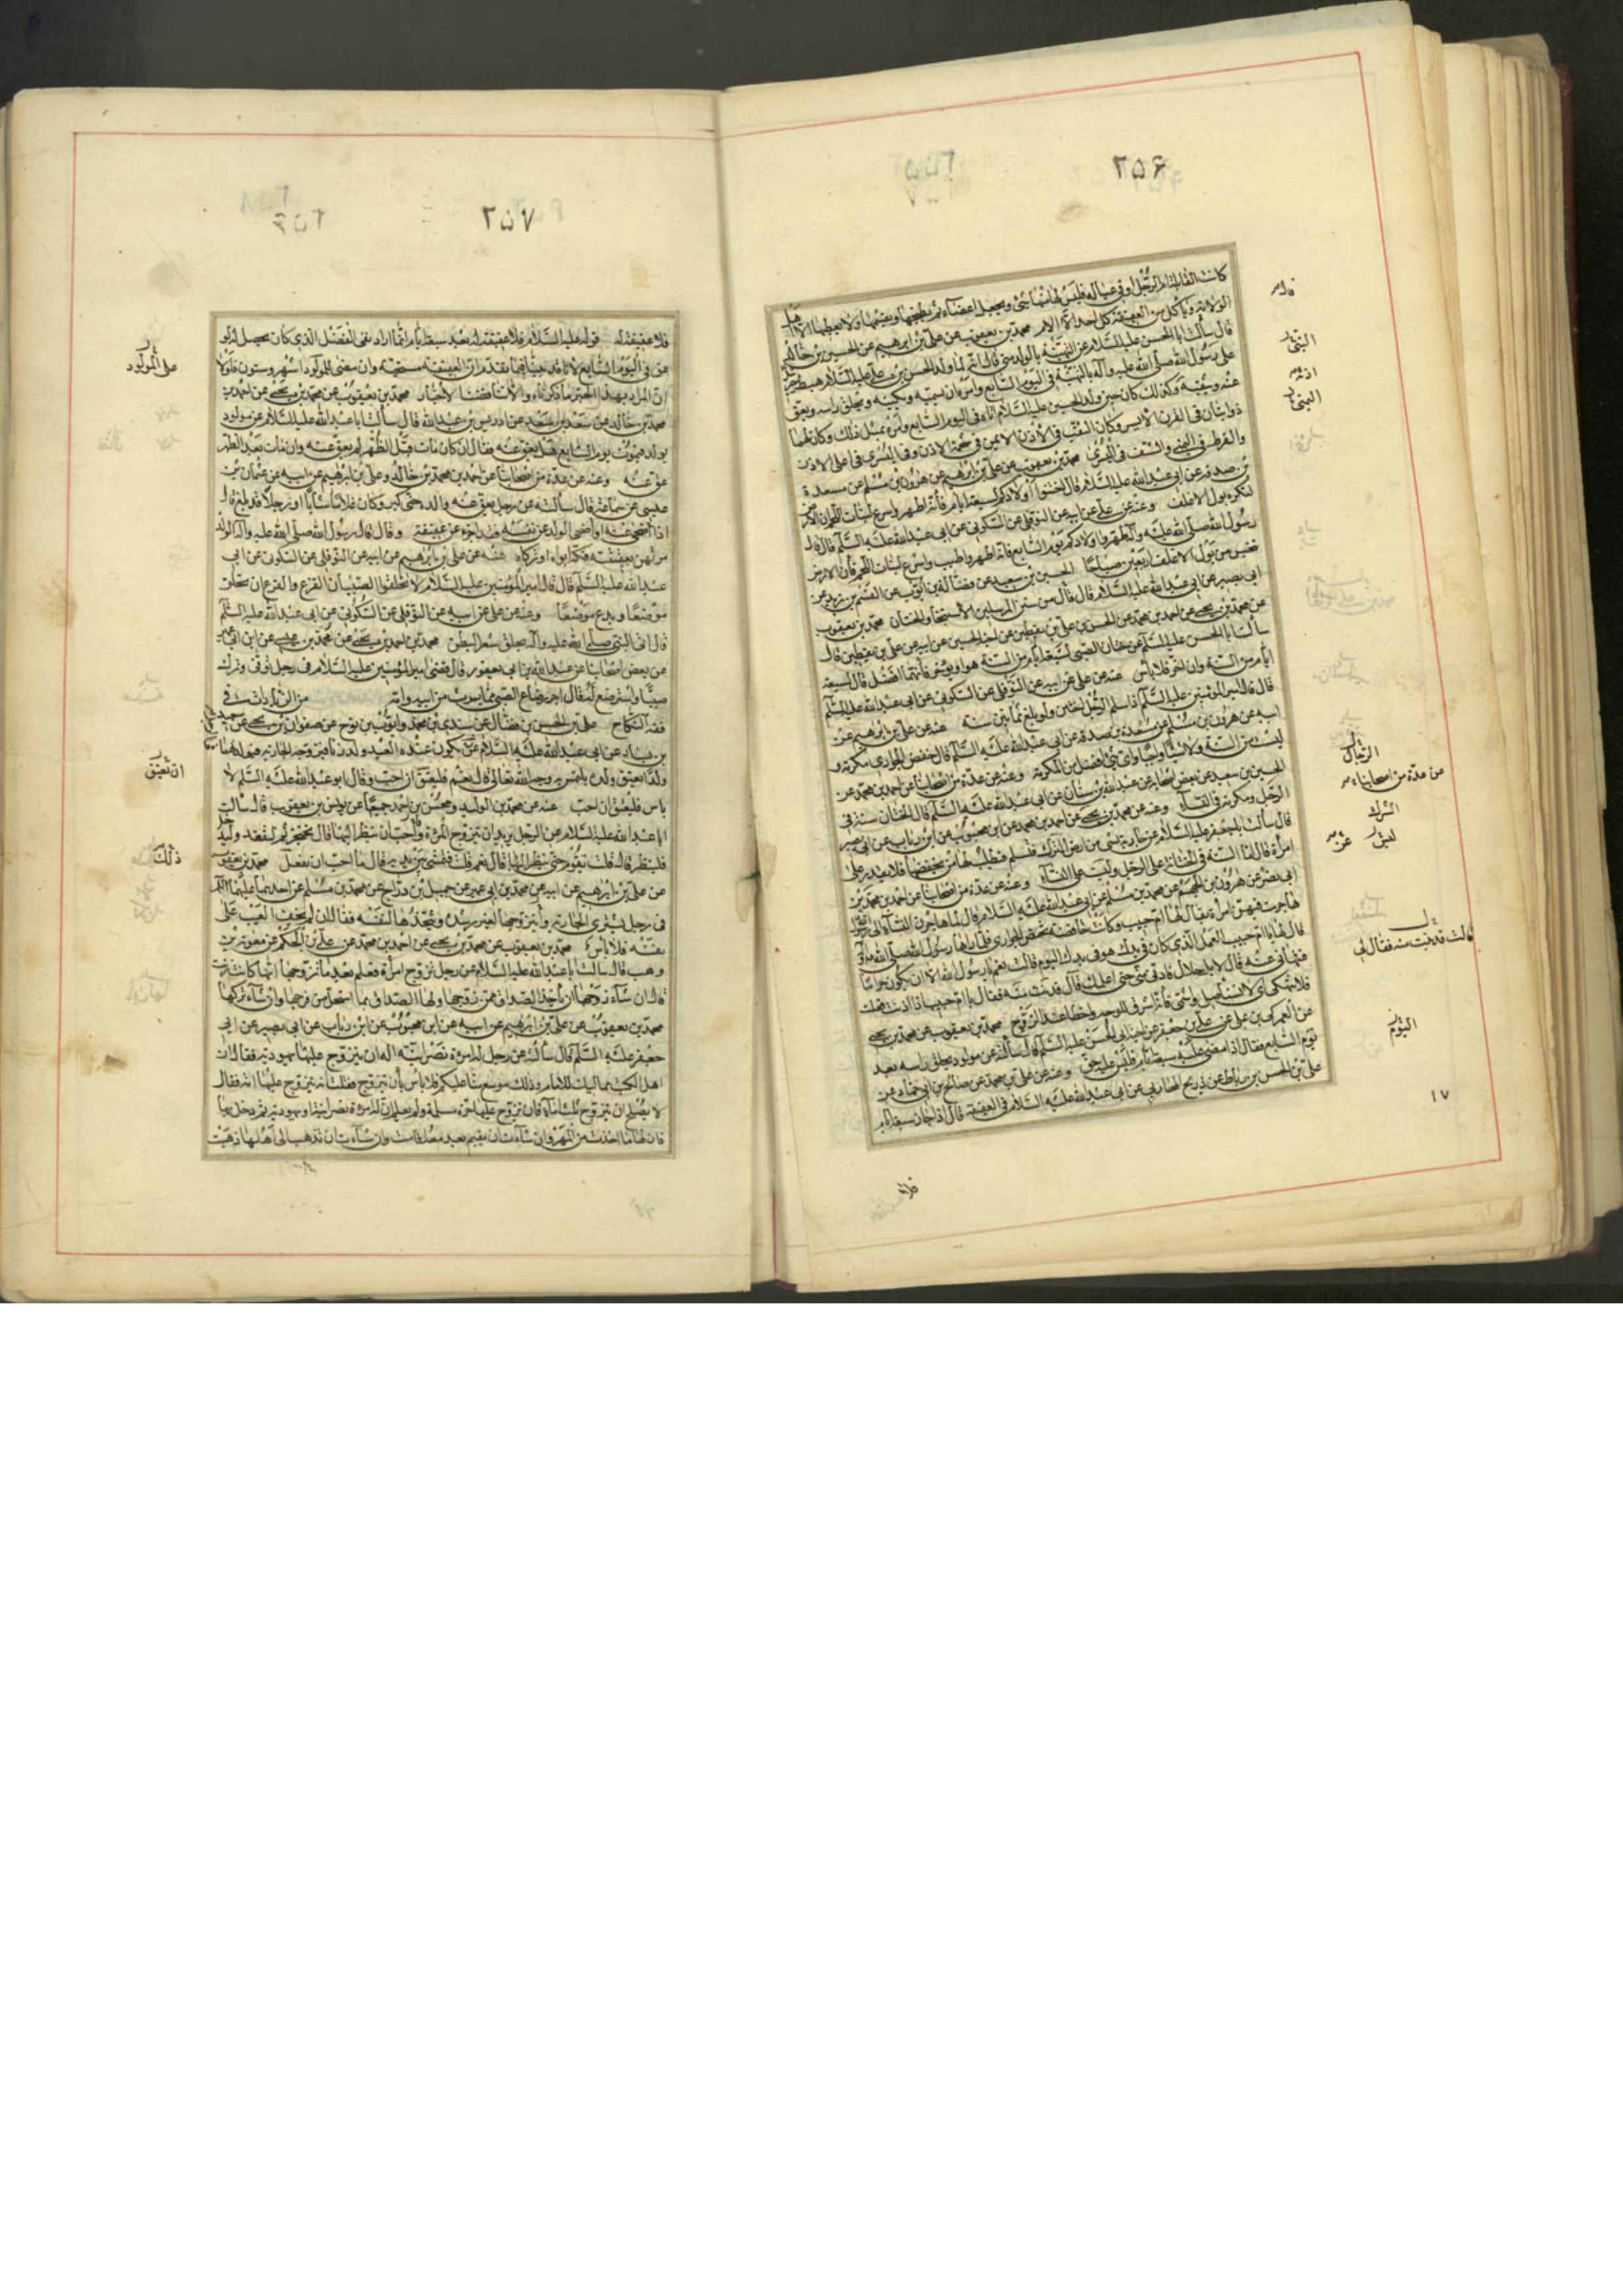 ٢٥٦
كانت القابلة ام الرجل او في عياله فليس لها منها شئ ويجعل اعضاء ثم يطبخها ويقسمها ولا يعطيها الا اهل
الولاية وياكل من العقيقة كل احد الا الام محمد بن يعقوب عن علي بن ابرهيم عن الحسين بن خالد
قال سألت ابا الحسن عليه السلام عن التهنية بالولد متى قال انه لما ولد الحسن بن علي عليه السلام هبط جبرئيل
على رسول الله صلى الله عليه وآله بالتهنية في اليوم السابع وامره ان يسميه ويكنيه ويحلق راسه ويعق
عنه ويثقب اذنه وكذلك كان حين ولد الحسين عليه السلام اتاه في اليوم السابع وامره بمثل ذلك وكان لهما
ذوابتان في القرن الايسر وكان الثقب في الاذن الايمن في شحمة الاذن وفي اليسرى في اعلى الاذن
والقرط في اليمنى والشنف في اليسرى محمد بن يعقوب عن علي بن ابرهيم عن هرون بن مسلم عن مسعدة
بن صدقة عن ابي عبد الله عليه السلام قال اختنوا اولادكم لسبعة ايام فانه اطهر واسرع لنبات اللحم وان الارض
لتكره بول الاغلف وعنه عن علي عن ابيه عن النوفلي عن السكوني عن ابي عبد الله عليه السلم قال قال
رسول الله صلى الله عليه وآله طهروا اولادكم يوم السابع فانه اطهر واطيب واسرع لنبات اللحم فان الارض
تنجس من بول الاغلف اربعين صباحا الحسين بن سعيد عن فضالة بن ايوب عن القسم بن بريد عن
ابي بصير عن ابي عبد الله عليه السلام قال قال من سنن المرسلين الاستنجاء والختان محمد بن يعقوب
عن محمد بن يحيى عن احمد بن محمد عن الحسن بن علي بن يقطين عن اخيه الحسين عن ابيه عن علي بن يقطين قال
سألت ابا الحسن عليه السلم عن ختان الصبي لسبعة ايام من السنة هو او يؤخر فايهما افضل قال لسبعة
ايام من السنة وان اخر فلا باس عنه عن علي عن ابيه عن النوفلي عن السكوني عن ابي عبد الله عليه السلم
قال قال امير المؤمنين عليه السلم اذا اسلم الرجل اختتن ولو بلغ ثمانين سنة عنه عن علي بن ابرهيم عن
ابيه عن هرون بن مسلم عن مسعدة بن صدقة عن ابي عبد الله عليه السلم قال خفض الجواري مكرمة و
ليست من السنة ولا شيئا واجبا واي شئ افضل من المكرمة وعنه عن عدة من اصحابنا عن احمد بن محمد عن
الحسين بن سعيد عن بعض اصحابه عن عبد الله بن سنان عن ابي عبد الله عليه السلم قال الختان سنة في
الرجل ومكرمة في النساء وعنه عن محمد بن يحيى عن احمد بن محمد عن ابن محبوب عن ابن رئاب عن ابي بصير
قال سألت ابا جعفر عليه السلام عن جارية تسبى من ارض الشرك فتسلم فيطلب لها من يخفضها فلا يقدر على
امرأة قال اما السنة في الختان على الرجل وليست على النساء وعنه عن عدة من اصحابنا عن احمد بن محمد بن
ابي نصر عن هرون بن الجهم عن محمد بن مسلم عن ابي عبد الله عليه السلام قال لما هاجرن النساء الى رسول الله
هاجرت فيهن امرأة يقال لها ام حبيب وكانت خافضة تخفض الجواري فلما رآها رسول الله صلى الله عليه وآله
قال لها يا ام حبيب العمل الذي كان في يدك هو في يدك اليوم قالت نعم يا رسول الله الا ان يكون حراما
فتنهاني عنه قال لا بل حلال فادني مني حتى اعلمك قال فدنت منه فقال يا ام حبيب اذا انت فعلت
فلا تنهكي اي لا تستأصلي واشمي فانه اشرق للوجه واحظى عند الزوج محمد بن يعقوب عن محمد بن يحيى
عن العمركي بن علي عن علي بن جعفر عن اخيه ابي الحسن عليه السلم قال سألته عن مولود يحلق راسه بعد
يوم السابع فقال اذا مضى عليه سبعة ايام فليس عليه حلق وعنه عن علي بن محمد عن صالح بن ابي حماد عن
علي بن الحسن بن رباط عن ذريح المحاربي عن ابي عبد الله عليه السلام في العقيقة قال اذا جاز سبعة ايام
فلا
اليمنى
اذنه
اليمنى
الرجال
عن عدة من اصحابنا
الشرك
ليس
عن
قالت فدنت منه فقال لي
اليوم
١٧
٢٥٧
فلا عقيقة له قوله عليه السلام فلا عقيقة له بعد سبعة ايام انما اراد نفي الفضل الذي كان يحصل له لو
عق في اليوم السابع لانا قد بينا فيما تقدم ان العقيقة مستحبة وان مضى للمولود اشهر وسنون فلولا
ان المراد بهذا الخبر ما ذكرناه والا تناقضت الاخبار محمد بن يعقوب عن محمد بن يحيى عن احمد بن
محمد بن خالد عن سعد بن سعد عن ادريس بن عبد الله قال سألت ابا عبد الله عليه السلام عن مولود
يولد فيموت يوم السابع هل يعق عنه فقال ان كان مات قبل الظهر لم يعق عنه وان مات بعد الظهر
عق عنه وعنه عن عدة من اصحابنا عن احمد بن محمد بن خالد وعلي بن ابرهيم عن ابيه عن عثمان بن
عيسى عن سماعة قال سألته عن رجل لم يعق عنه والده حتى كبر وكان غلاما شابا او رجلا قد بلغ قال
اذا ضحي عنه او ضحى الولد عن نفسه فقد اجزء عن عقيقته وقال قال رسول الله صلى الله عليه وآله الولد
مرتهن بعقيقته فكه ابواه او تركاه عنه عن علي بن ابرهيم عن ابيه عن النوفلي عن السكوني عن ابي
عبد الله عليه السلم قال قال امير المؤمنين عليه السلام لا تحلقوا الصبيان القزع والقزع ان تحلق
موضعا ويدع موضعا وعنه عن علي عن ابيه عن النوفلي عن السكوني عن ابي عبد الله عليه السلم
قال اتى النبي صلى الله عليه وآله
عن بعض اصحابنا عن عبد الله بن ابي يعفور قال قضى امير المؤمنين عليه السلام في رجل توفي وترك
صبيا واسترضع له فقال اجر رضاع الصبي مما يرث من ابيه وامه من الزيادات في
فقه النكاح علي بن الحسن بن فضال عن سندي بن محمد وايوب بن نوح عن صفوان بن يحيى عن سعيد
بن يسار عن ابي عبد الله عليه السلام
ولدا يعتق ولده يلتمس به وجه الله تعالى قال نعم فليعتق ان احب وقال ابو عبد الله عليه السلم لا
باس فليعتق ان احب عنه عن محمد بن الوليد ومحسن بن احمد جميعا عن يونس بن يعقوب قال سألت
ابا عبد الله عليه السلام عن الرجل يريد ان يتزوج المرءة واحب ان ينظر اليها قال تحتجز ثم لتقعد وليدخل
فلينظر قال قلت تقوم حتى ينظر اليها قال نعم قلت فتمشي بين يديه قال ما احب ان تفعل محمد بن يعقوب
عن علي بن ابرهيم عن ابيه عن محمد بن ابي عمير عن جميل بن دراج عن محمد بن مسلم عن احدهما عليهما السلم
في رجل يشتري الجارية او يتزوجها لغير رشدة ويتخذها لنفسه فقال ان لم يخف العيب على
نفسه فلا باس محمد بن يعقوب عن محمد بن يحيى عن احمد بن محمد عن علي بن الحكم عن معوية بن
وهب قال سألت ابا عبد الله عليه السلام عن رجل تزوج امرأة فعلم بعد ما تزوجها انها كانت زنت
قال ان شاء زوجها ان يأخذ الصداق ممن زوجها ولها الصداق بما استحل من فرجها وان شاء تركها
محمد بن يعقوب عن علي بن ابرهيم عن ابيه عن ابن محبوب عن ابن رئاب عن ابي بصير عن ابي
جعفر عليه السلم قال سألته عن رجل له امرءة نصرانية اله ان يتزوج عليها يهودية فقال ان
اهل الكتب مماليك للامام وذلك موسع منا عليكم فلا باس بأن تتزوج قلت فانه تزوج عليها امة فقال
لا يصلح ان يتزوج ثلث اماء فان تزوج عليها حرة مسلمة ولم تعلم ان له امرءة نصرانية ويهودية ثم دخل بها
فان لها ما اخذت من المهر وان شاءت ان تقيم بعد معه اقامت وان شاءت ان تذهب الى اهلها ذهبت
على المولود
ان يعتق
ذلك